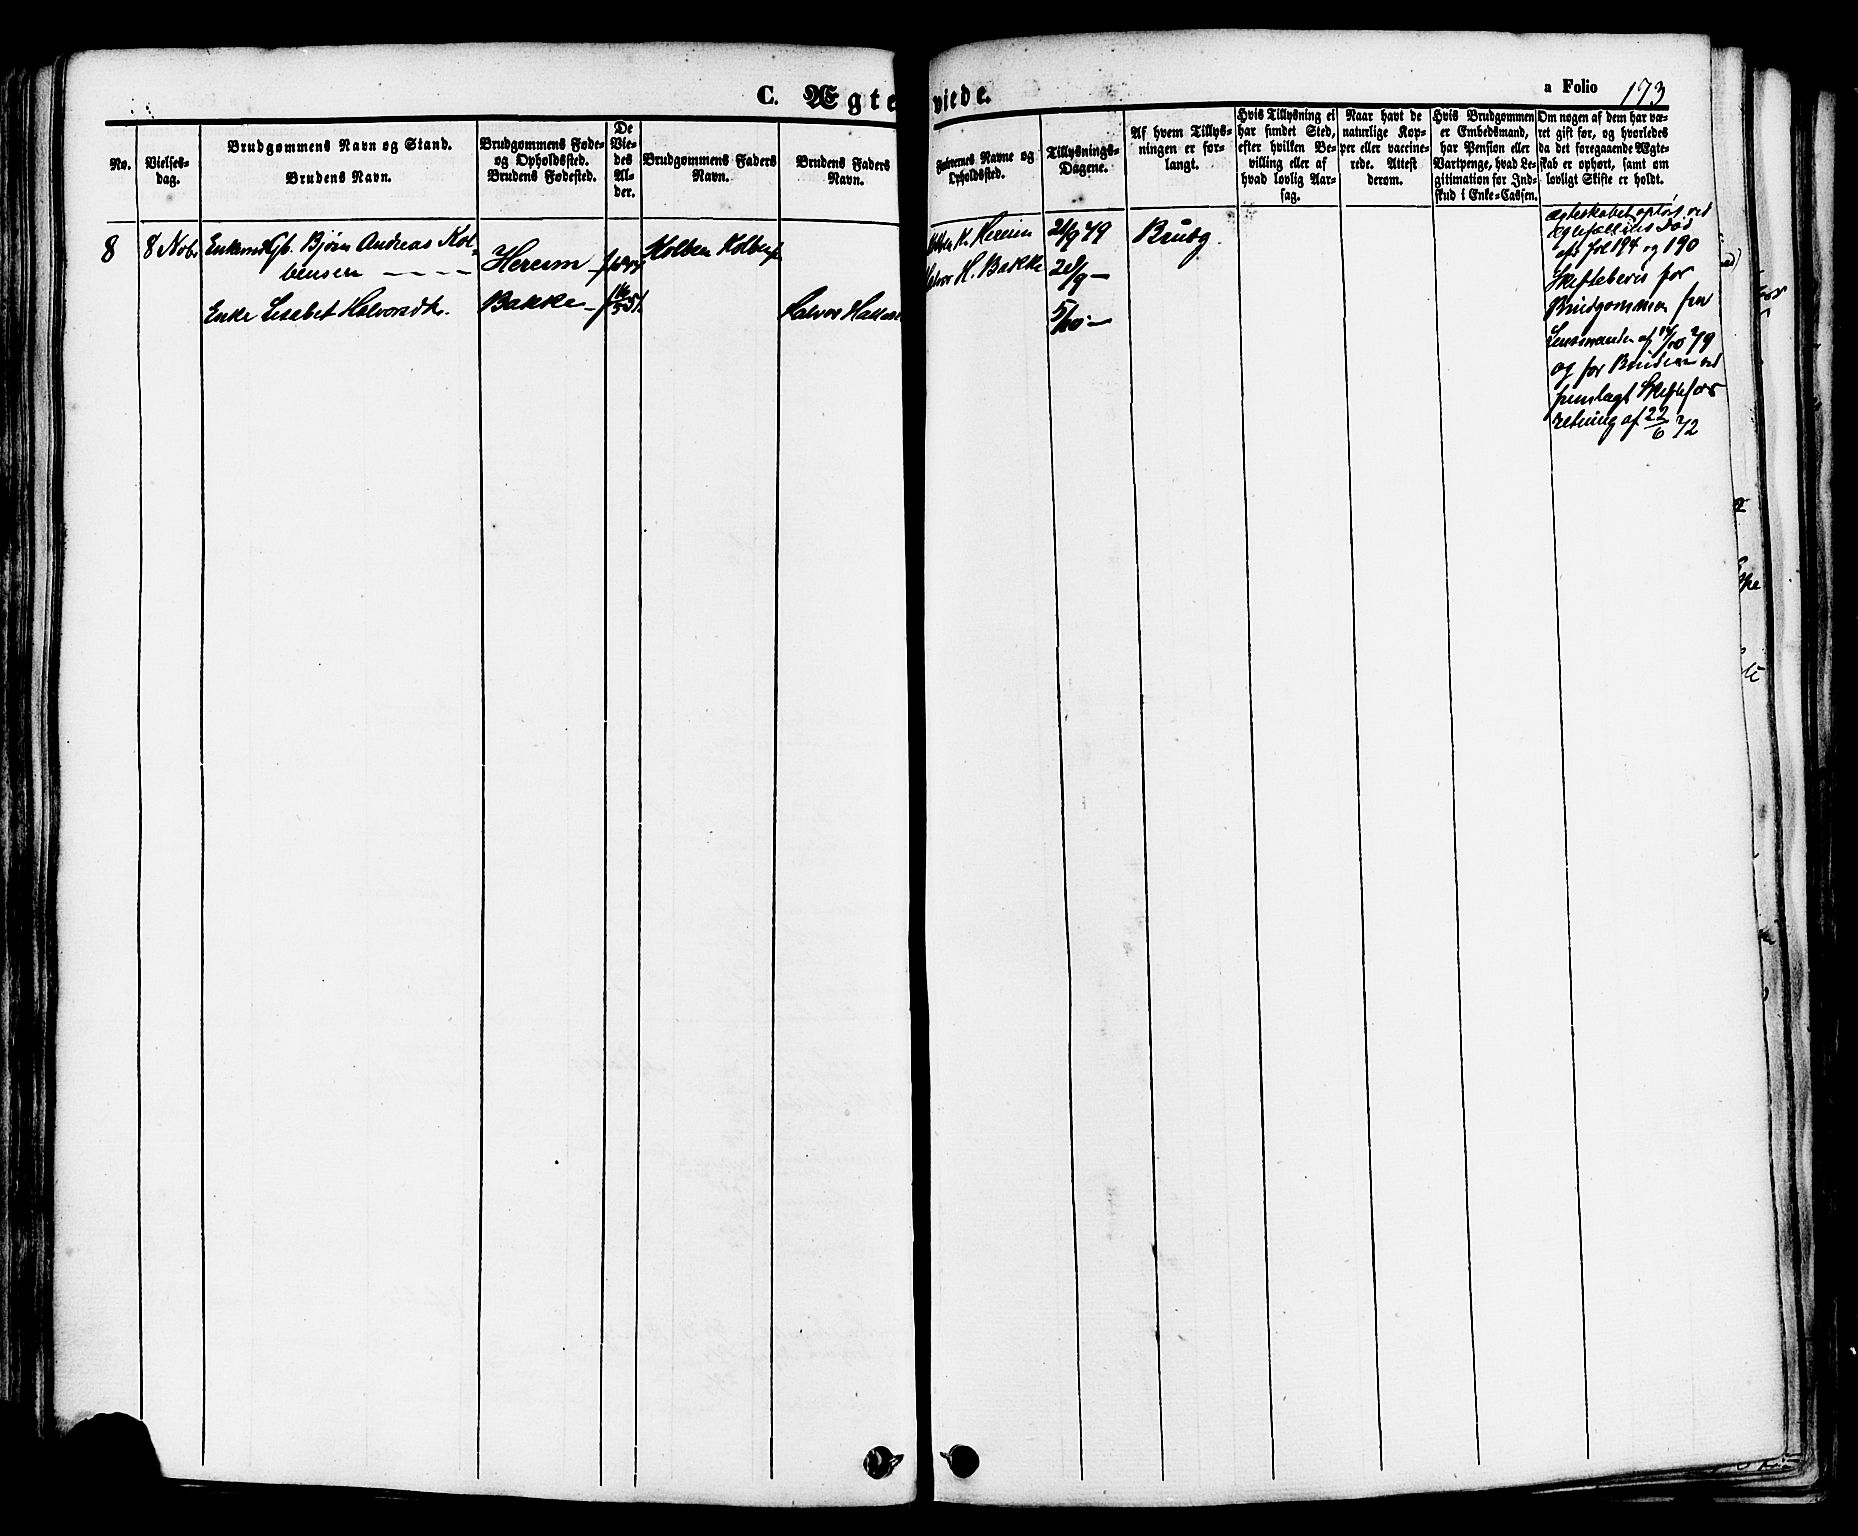 C. Ægteviede.
a Folio 173
No.
Vielses-
dag.
Brudgommens Navn og Stand.
Brudens Navn.
Brudgommens Føde-
og Opholdssted.
Brudens Fødested.
De
Vie-
des
Al-
der.
Brudgommens Faders
Navn.
Brudens Faders
Navn.
Forlovernes Navne og
Opholdssted.
Tillysnings-
Dagene.
Af hvem Tillys-
ningen er for-
langt.
Hvis Tillysning ei
har fundet Sted,
efter hvilken Be-
villing eller af
hvad lovlig Aar-
sag.
Naar havt de
naturlige Kop-
per eller vaccine-
rede. Attest
derom.
Hvis Brudgommen
er Embedsmand,
har Pension eller
Vartpenge, hvad Le-
gitimation for Ind-
skud i Enke-Cassen.
Om nogen af dem har væ-
ret gift før, og hvorledes
da det foregaaende Ægte-
skab er ophørt, samt om
lovligt Skifte er holdt.
8
8 Nobr
Enkemd Gb. Bjørn Andreas Kol-
bensen
Enke Lisabet Halvorsdtr.
Hereim
Bakke
Kolben Kolbens
Halvor
K. Hereim
Halvor H. Bakke
21/9 79
28/9 —
5/10 —
Brudg.
Ægteskabet opløst ved
Ægtefælles Død
cfr Fol 194 og 190
Skiftebevis for
Brudgommen fra
Lensmanden af 14/10 79
og for Bruden ved
fremlagt Skiftefor
retning af 22/6 72